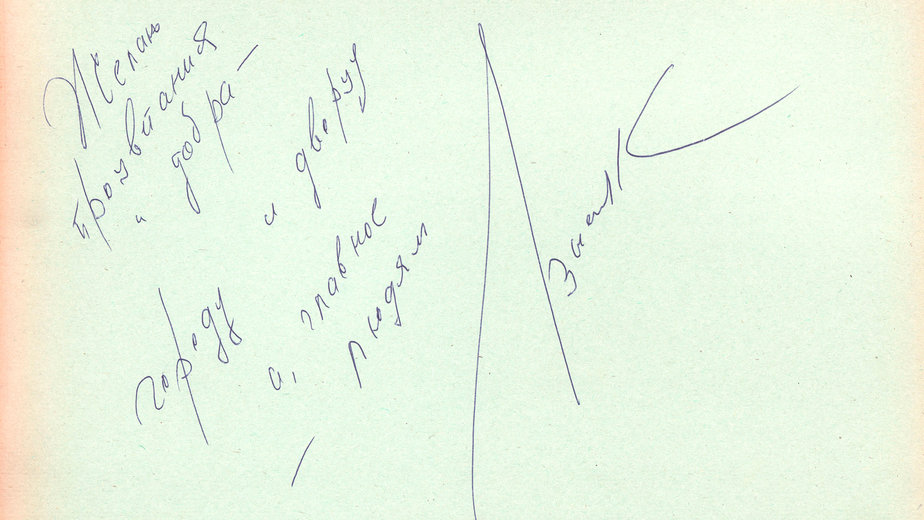 Желаю
процвитания
и добра —
городу
и дверуу
а, главное
— людям